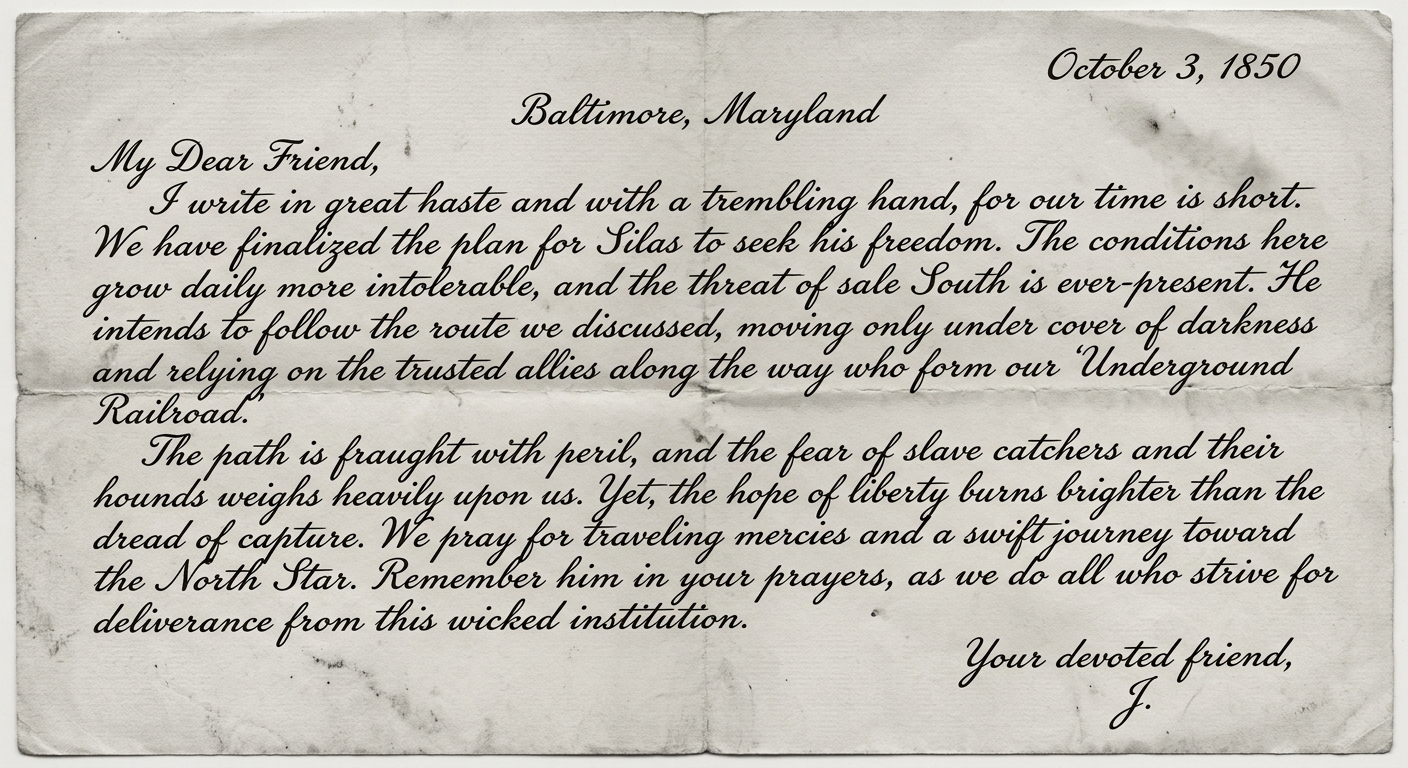 October 3, 1850
Baltimore, Maryland
My Dear Friend,
I write in great haste and with a trembling hand, for our time is short.
We have finalized the plan for Silas to seek his freedom. The conditions here
grow daily more intolerable, and the threat of sale South is ever-present. He
intends to follow the route we discussed, moving only under cover of darkness
and relying on the trusted allies along the way who form our ‘Underground
Railroad.’
The path is fraught with peril, and the fear of slave catchers and their
hounds weighs heavily upon us. Yet, the hope of liberty burns brighter than the
dread of capture. We pray for traveling mercies and a swift journey toward
the North Star. Remember him in your prayers, as we do all who strive for
deliverance from this wicked institution.
Your devoted friend,
J.